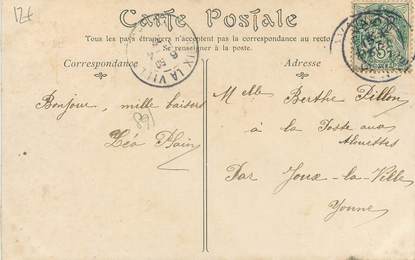 12f
Carte Postale
Tous les pays étrangers n'acceptent pas la correspondance au recto
Se renseigner à la poste.
Correspondance
Adresse
Bonjour, mille baisers
Léa Hain
Melle Berthe Fillon
à la Poste aux
Alouettes
Par Joux-la-Ville
Yonne